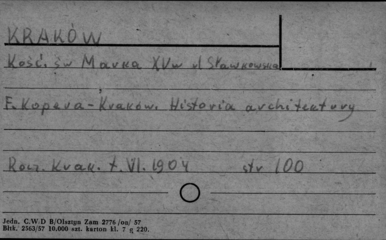 KRAKÓW
Kość. św Marka XVw ul Sławkowska
F. Kopera - Kraków. Historia architektury
Rocz. Krak. t. VI. 1904 str 100
Jedn. C.W.D B/Olsztyn Zam 2776/ou/ 57
Bltk. 2563/57 10.000 szt. karton kl. 7 g 220.